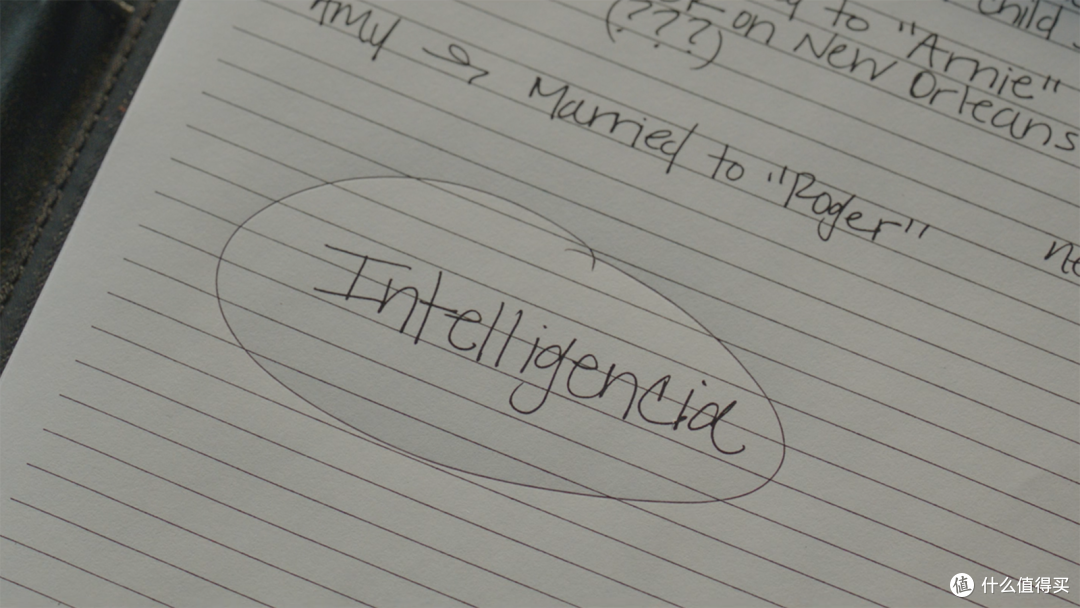 to "Arnie" child
on New Orleans
(???)
Amy → Married to "Roger"
Intelligencia
值 什么值得买